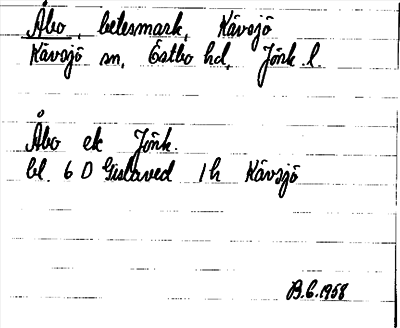 Åbo, betesmark, Kävsjö
Kävsjö sn, Östbo hd, Jönk. l.
Åbo ek Jönk.
bl. 6 D Gislaved 1 h Kävsjö
B.G. 1958